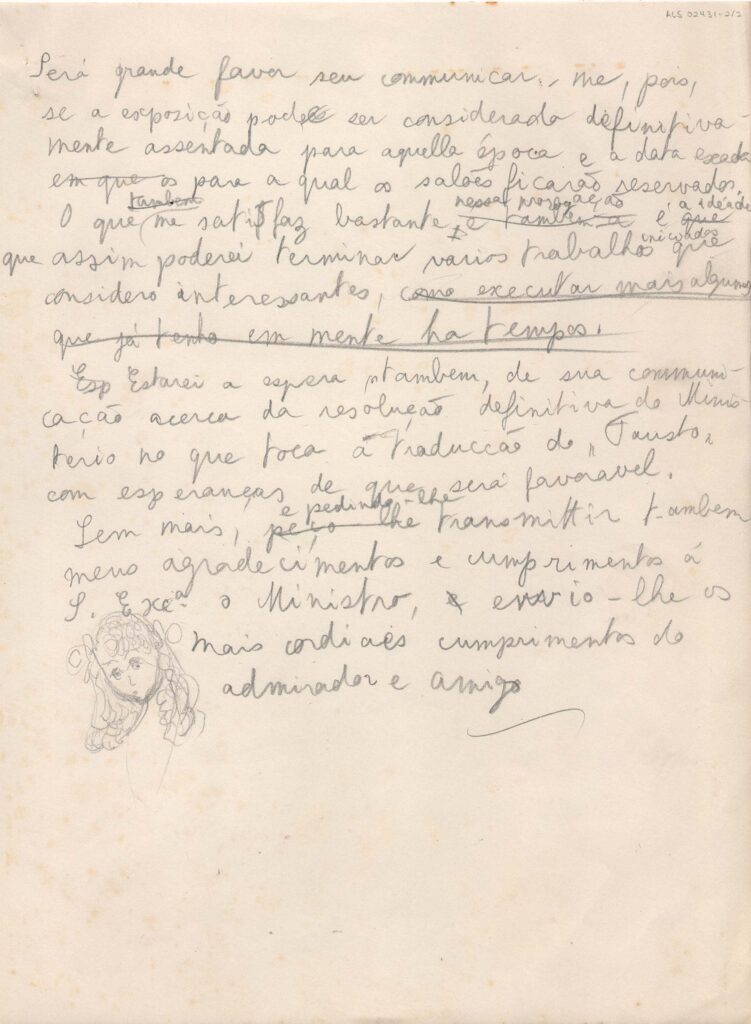 ALS 02431-2/2
Será grande favor seu communicar-me, pois,
se a exposição pode ser considerada definitiva-
mente assentada para aquella época e a data exacta
em que os para a qual os salões ficarão reservados.
tambem nessa prorogação a idéa de
O que me satisfaz bastante, e tambem a é que
iniciados
que assim poderei terminar varios trabalhos que
considero interessantes, como executar mais alguns
que já tenho em mente ha tempos.
Esp Estarei a espera, tambem, de sua communi-
cação acerca da resolução definitiva do Minis-
terio no que toca á traducção do "Fausto"
com esperanças de que será favoravel.
e pedindo-lhe
Sem mais, peço-lhe transmittir tambem
meus agradecimentos e cumprimentos á
S. Exª o Ministro, envio-lhe os
mais cordiaes cumprimentos do
admirador e amigo